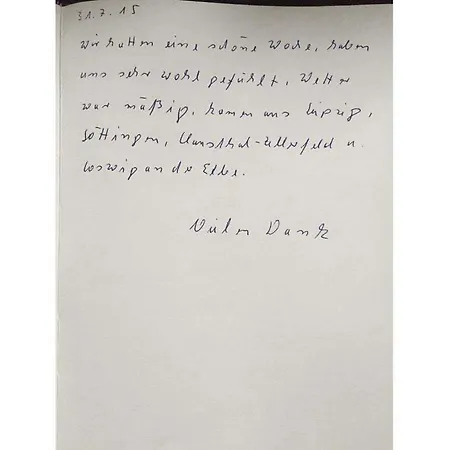 31.7.15
wir hatten eine schöne Woche, haben
uns sehr wohl gefühlt, Wetter
war mäßig, kamen aus Leipzig,
Göttingen, Clausthal-Zellerfeld u.
Coswig an der Elbe.
Vielen Dank